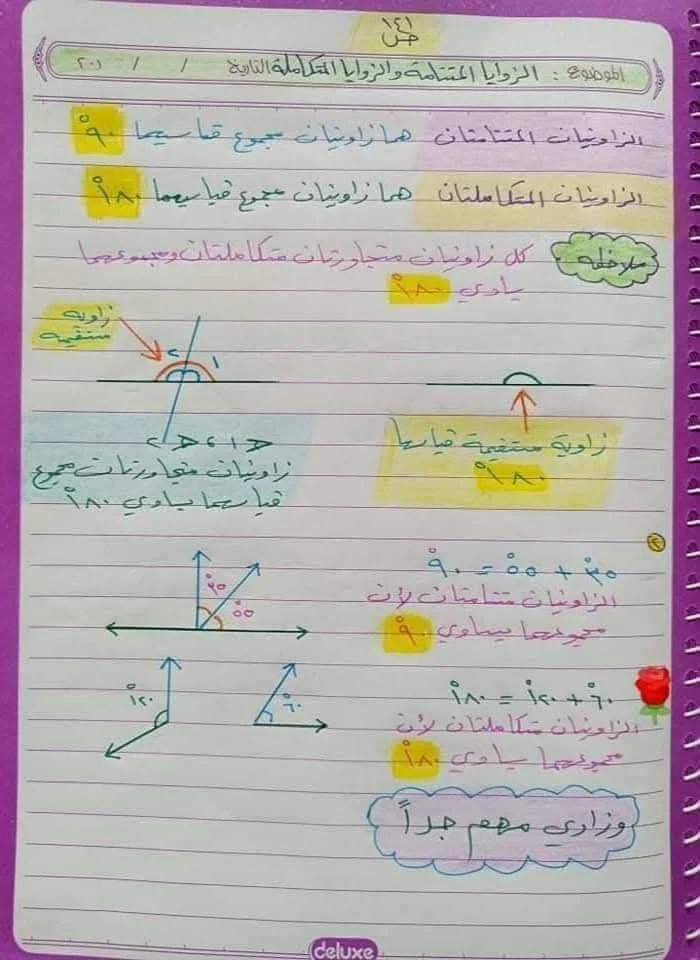 ١٤١
ص
الموضوع : الزوايا المتتامة والزوايا المتكاملة التاريخ / / ٢٠١
الزاويتان المتتامتان هما زاويتان مجموع قياسيهما ٩٠°
الزاويتان المتكاملتان هما زاويتان مجموع قياسيهما ١٨٠°
ملاحظة كل زاويتان متجاورتان متكاملتان ومجموعهما
يساوي ١٨٠°
زاوية
مستقيمة
٢ ١
زاوية مستقيمة قياسها
١٨٠°
>١ ، >٢
زاويتان متجاورتان مجموع
قياسهما يساوي ١٨٠°
٢
٣٥° + ٥٥° = ٩٠°
الزاويتان متتامتان لأن
مجموعهما يساوي ٩٠°
٣٥°
٥٥°
٦٠° + ١٢٠° = ١٨٠°
الزاويتان متكاملتان لأن
مجموعهما يساوي ١٨٠°
٦٠°
١٢٠°
وزاري مهم جداً
deluxe